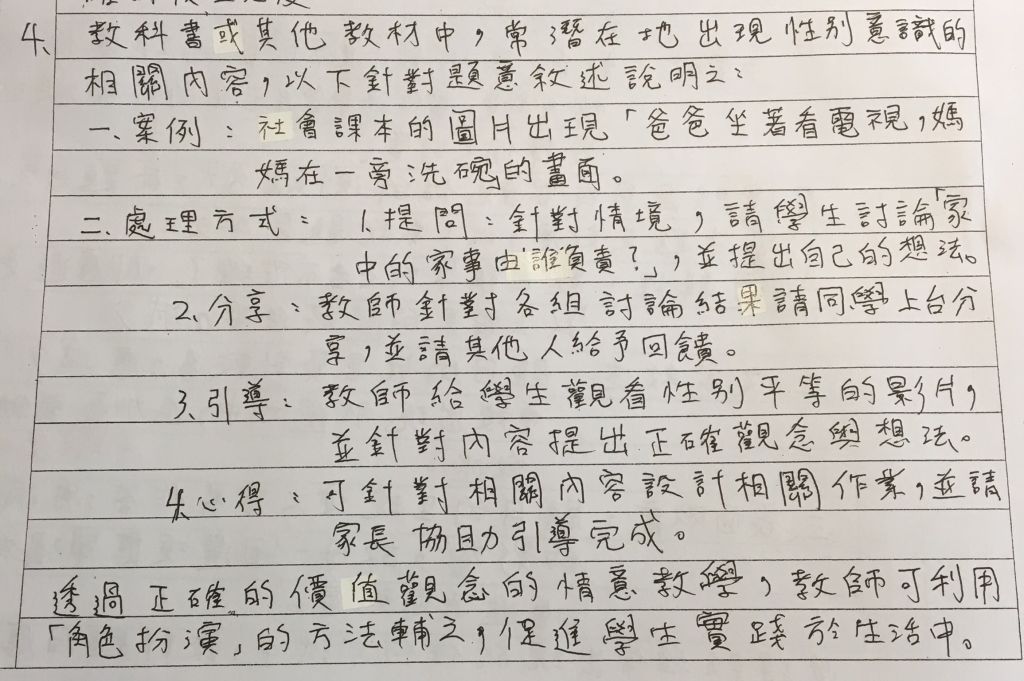 4. 教科書或其他教材中，常潛在地出現性別意識的
相關內容，以下針對題意敘述說明之：
一、案例：社會課本的圖片出現「爸爸坐著看電視，媽
媽在一旁洗碗」的畫面。
二、處理方式：1.提問：針對情境，請學生討論「家
中的家事由誰負責？」，並提出自己的想法。
2.分享：教師針對各組討論結果請同學上台分
享，並請其他人給予回饋。
3.引導：教師給學生觀看性別平等的影片，
並針對內容提出正確觀念與想法。
4.心得：可針對相關內容設計相關作業，並請
家長協助引導完成。
透過正確的價值觀念的情意教學，教師可利用
「角色扮演」的方法輔之，促進學生實踐於生活中。